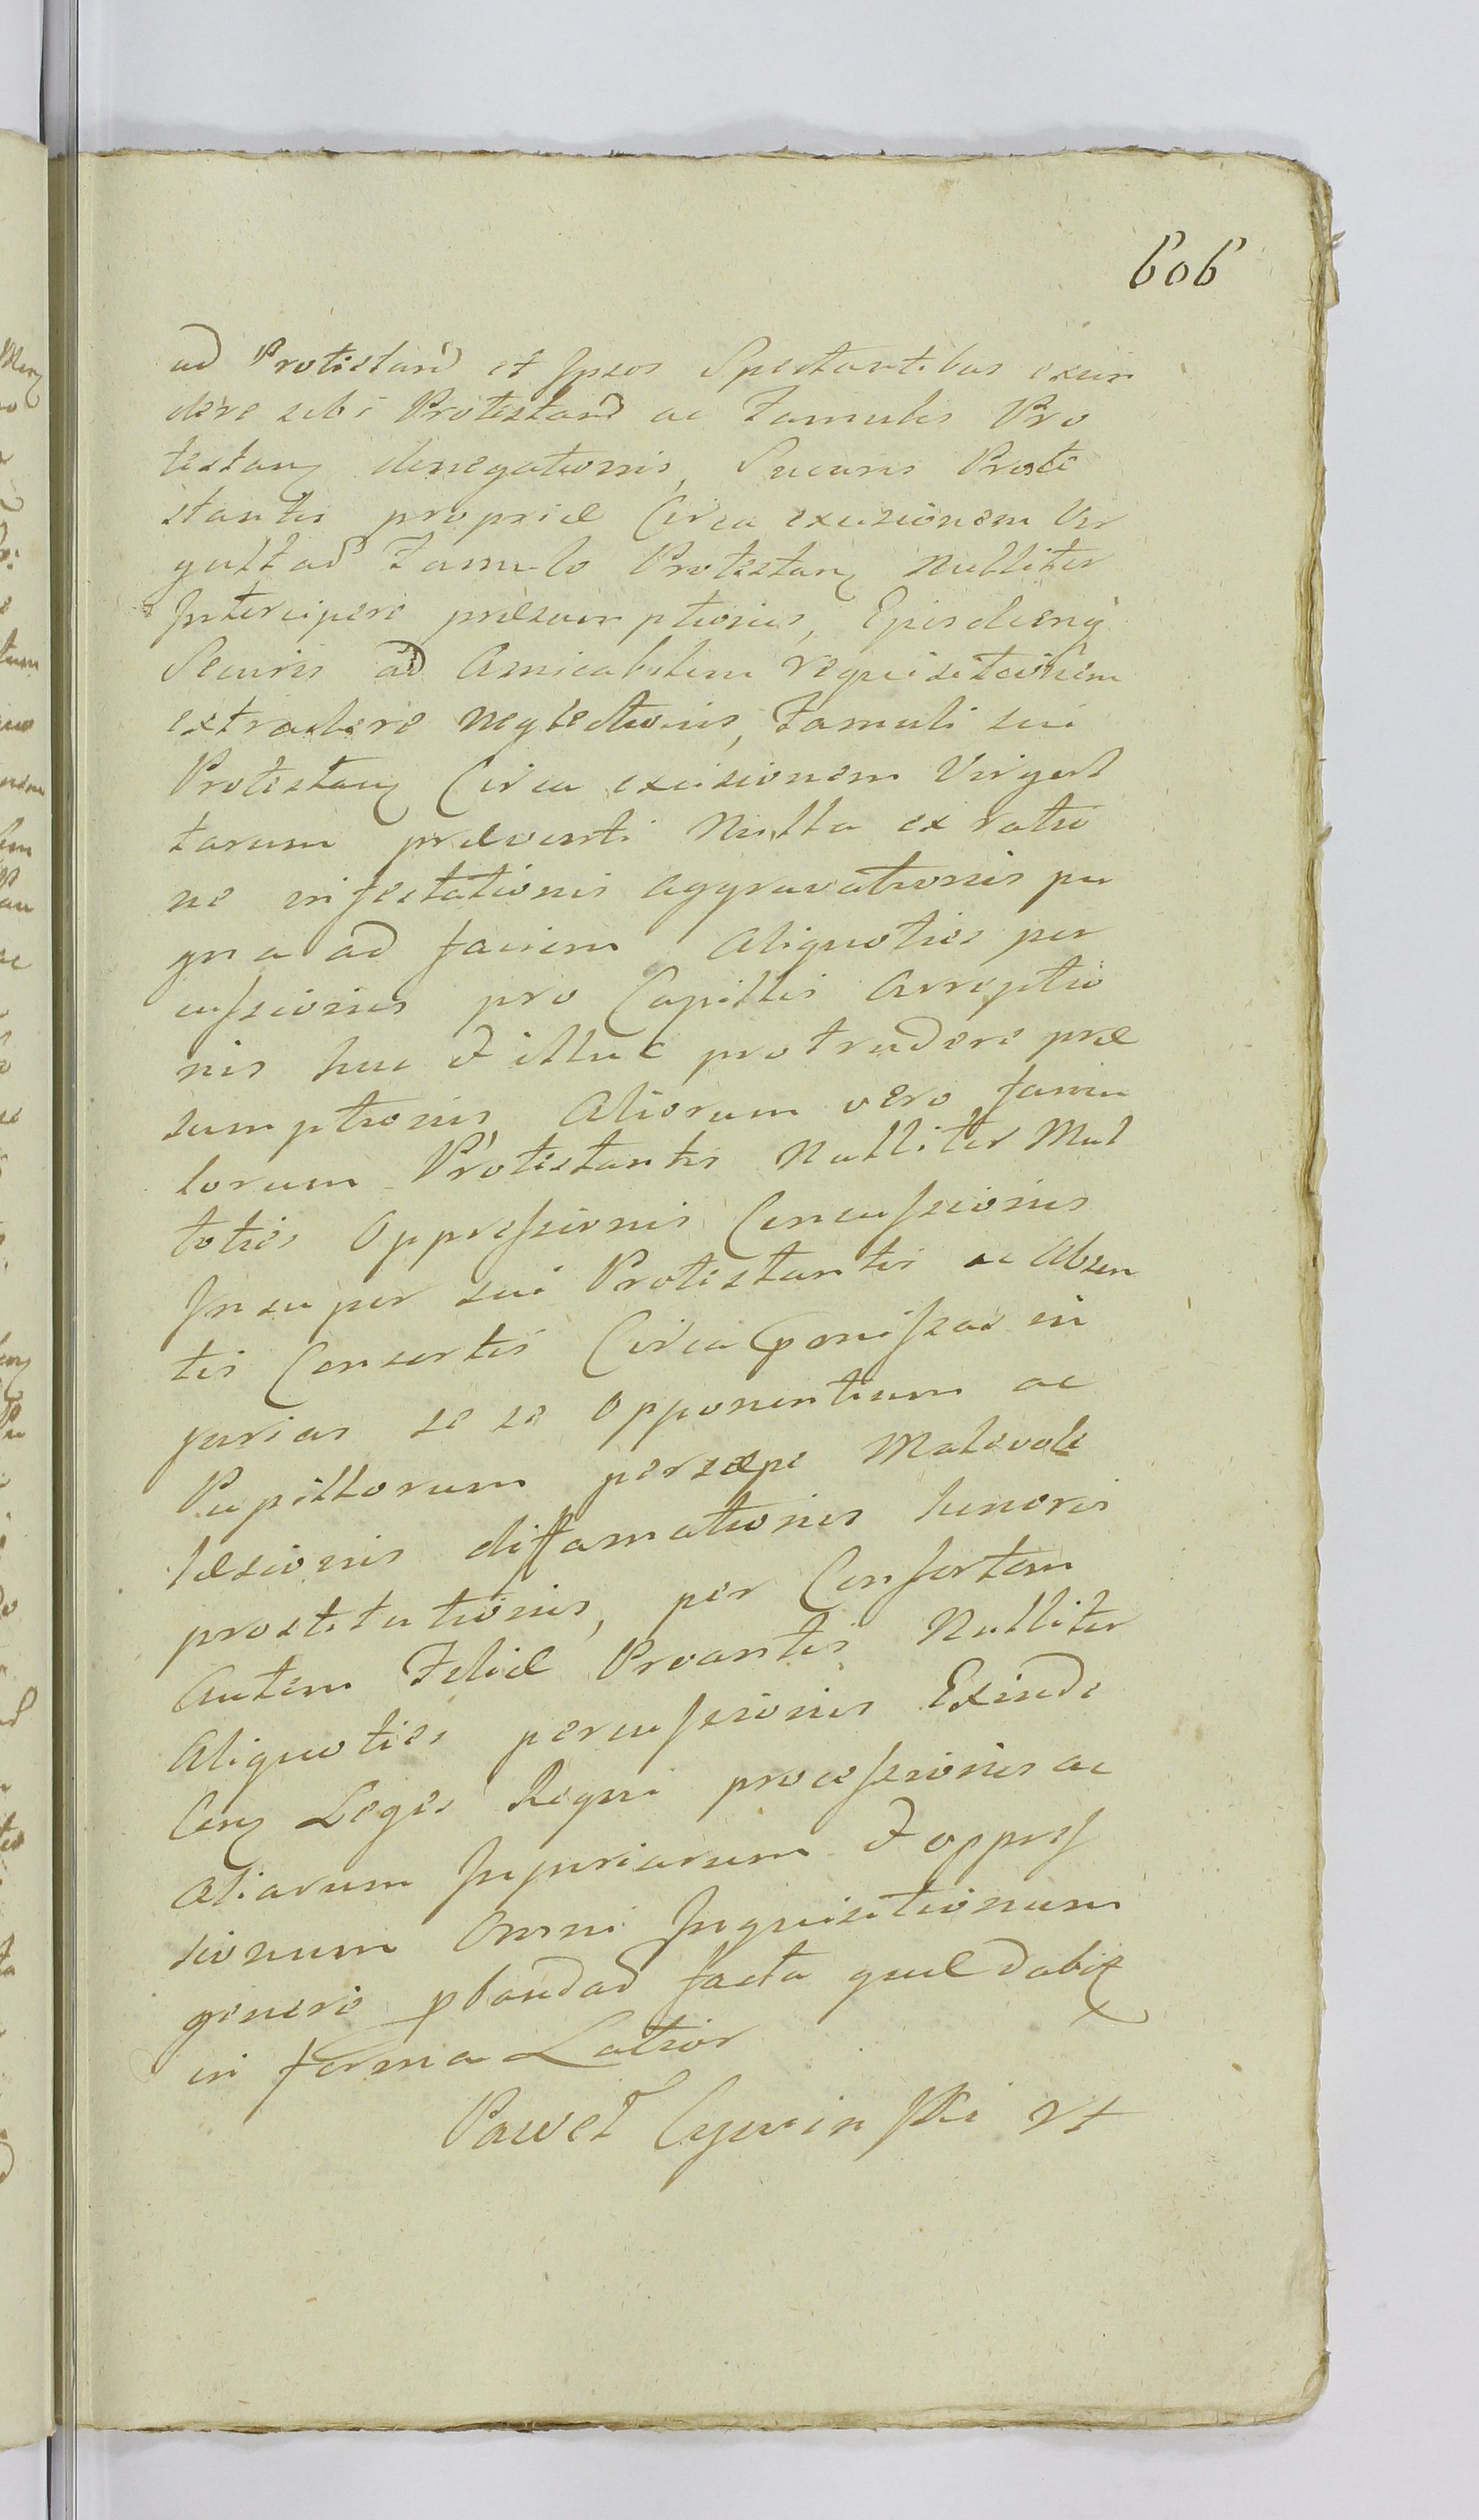 606
ad Protestand et Ipsos Spectantibus excin
dere sibi Protestand ac Famulis Pro
testanz denegationis, Securis Prote
stantis propriæ Circa excisionem Vir
gultad Famulo Protestanz Nulliter
Intercipere præsumptionis, Ejusdemq
Securis ad Amicabilem requisitionem
extradere neglectionis, Famuli sui
Protestanz Circa excisionem Virgul
tarum præventi Nulla ex ratio
ne infestationis aggravationis pu
gna ad faciem Aliquoties per
cussionis pro Capillis Arreptio
nis huc et illuc protrudere præ
sumptionis Aliorum vero famu
lorum Protestantis Nulliter Mul
toties Oppressionis Concussionis
Insuper sui Protestantis ac Absen
tis Consortis Circa pmissas in
jurias se se opponentium ac
Pupillorum persæpe Malevole
læsionis diffamationis honoris
prostitutionis, per Consortem
Autem Filiæ Prvantis Nulliter
Aliquoties percussionis Exinde
Conz Leges Regni processionis ac
aliarum Injuriarum et oppres
sionum Omni Inquisitionum
genere pbandad facta quæ dabit
in forma Latior
Paweł Cywinski